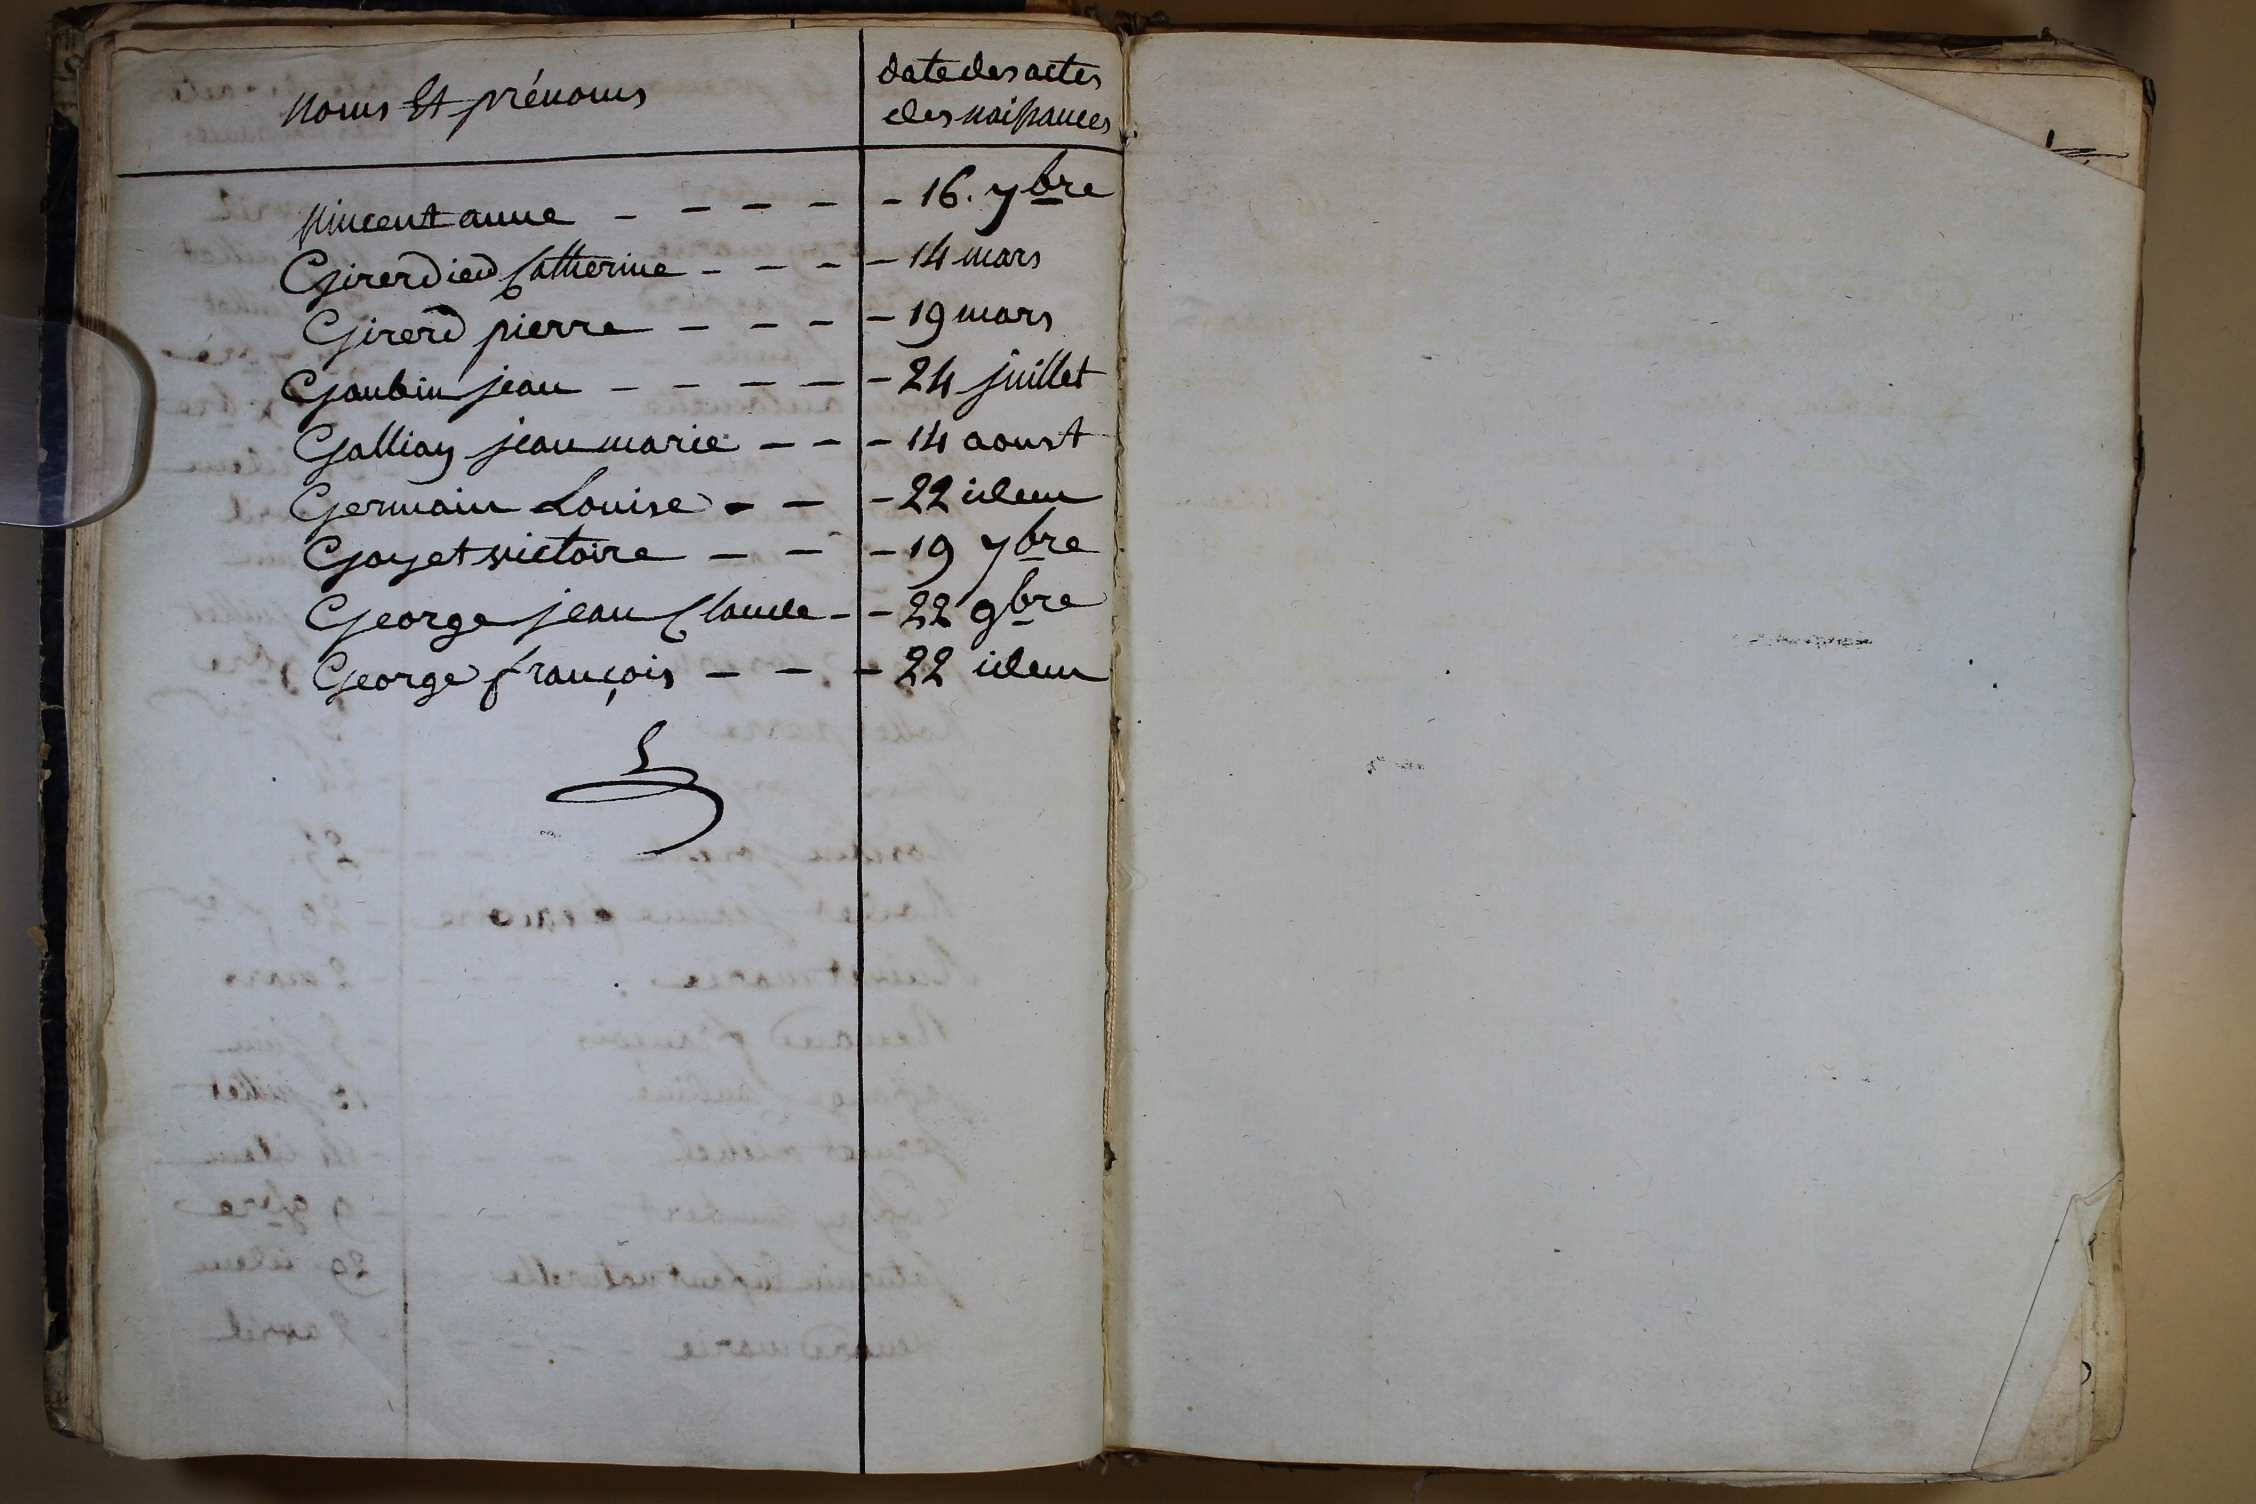 Noms Et prénoms
date des actes
des naissances
Vincent anne - - - - - 16. 7bre
Girerdied Catherine - - - - 14 mars
Girerd pierre - - - - 19 mars
Gaubin jean - - - - - 24 juillet
Gallian jean marie - - - 14 aoust
Germain Louise - - - 22 idem
Gayet victoire - - - 19 7bre
George jean Claude - - 22 9bre
George françois - - - 22 idem